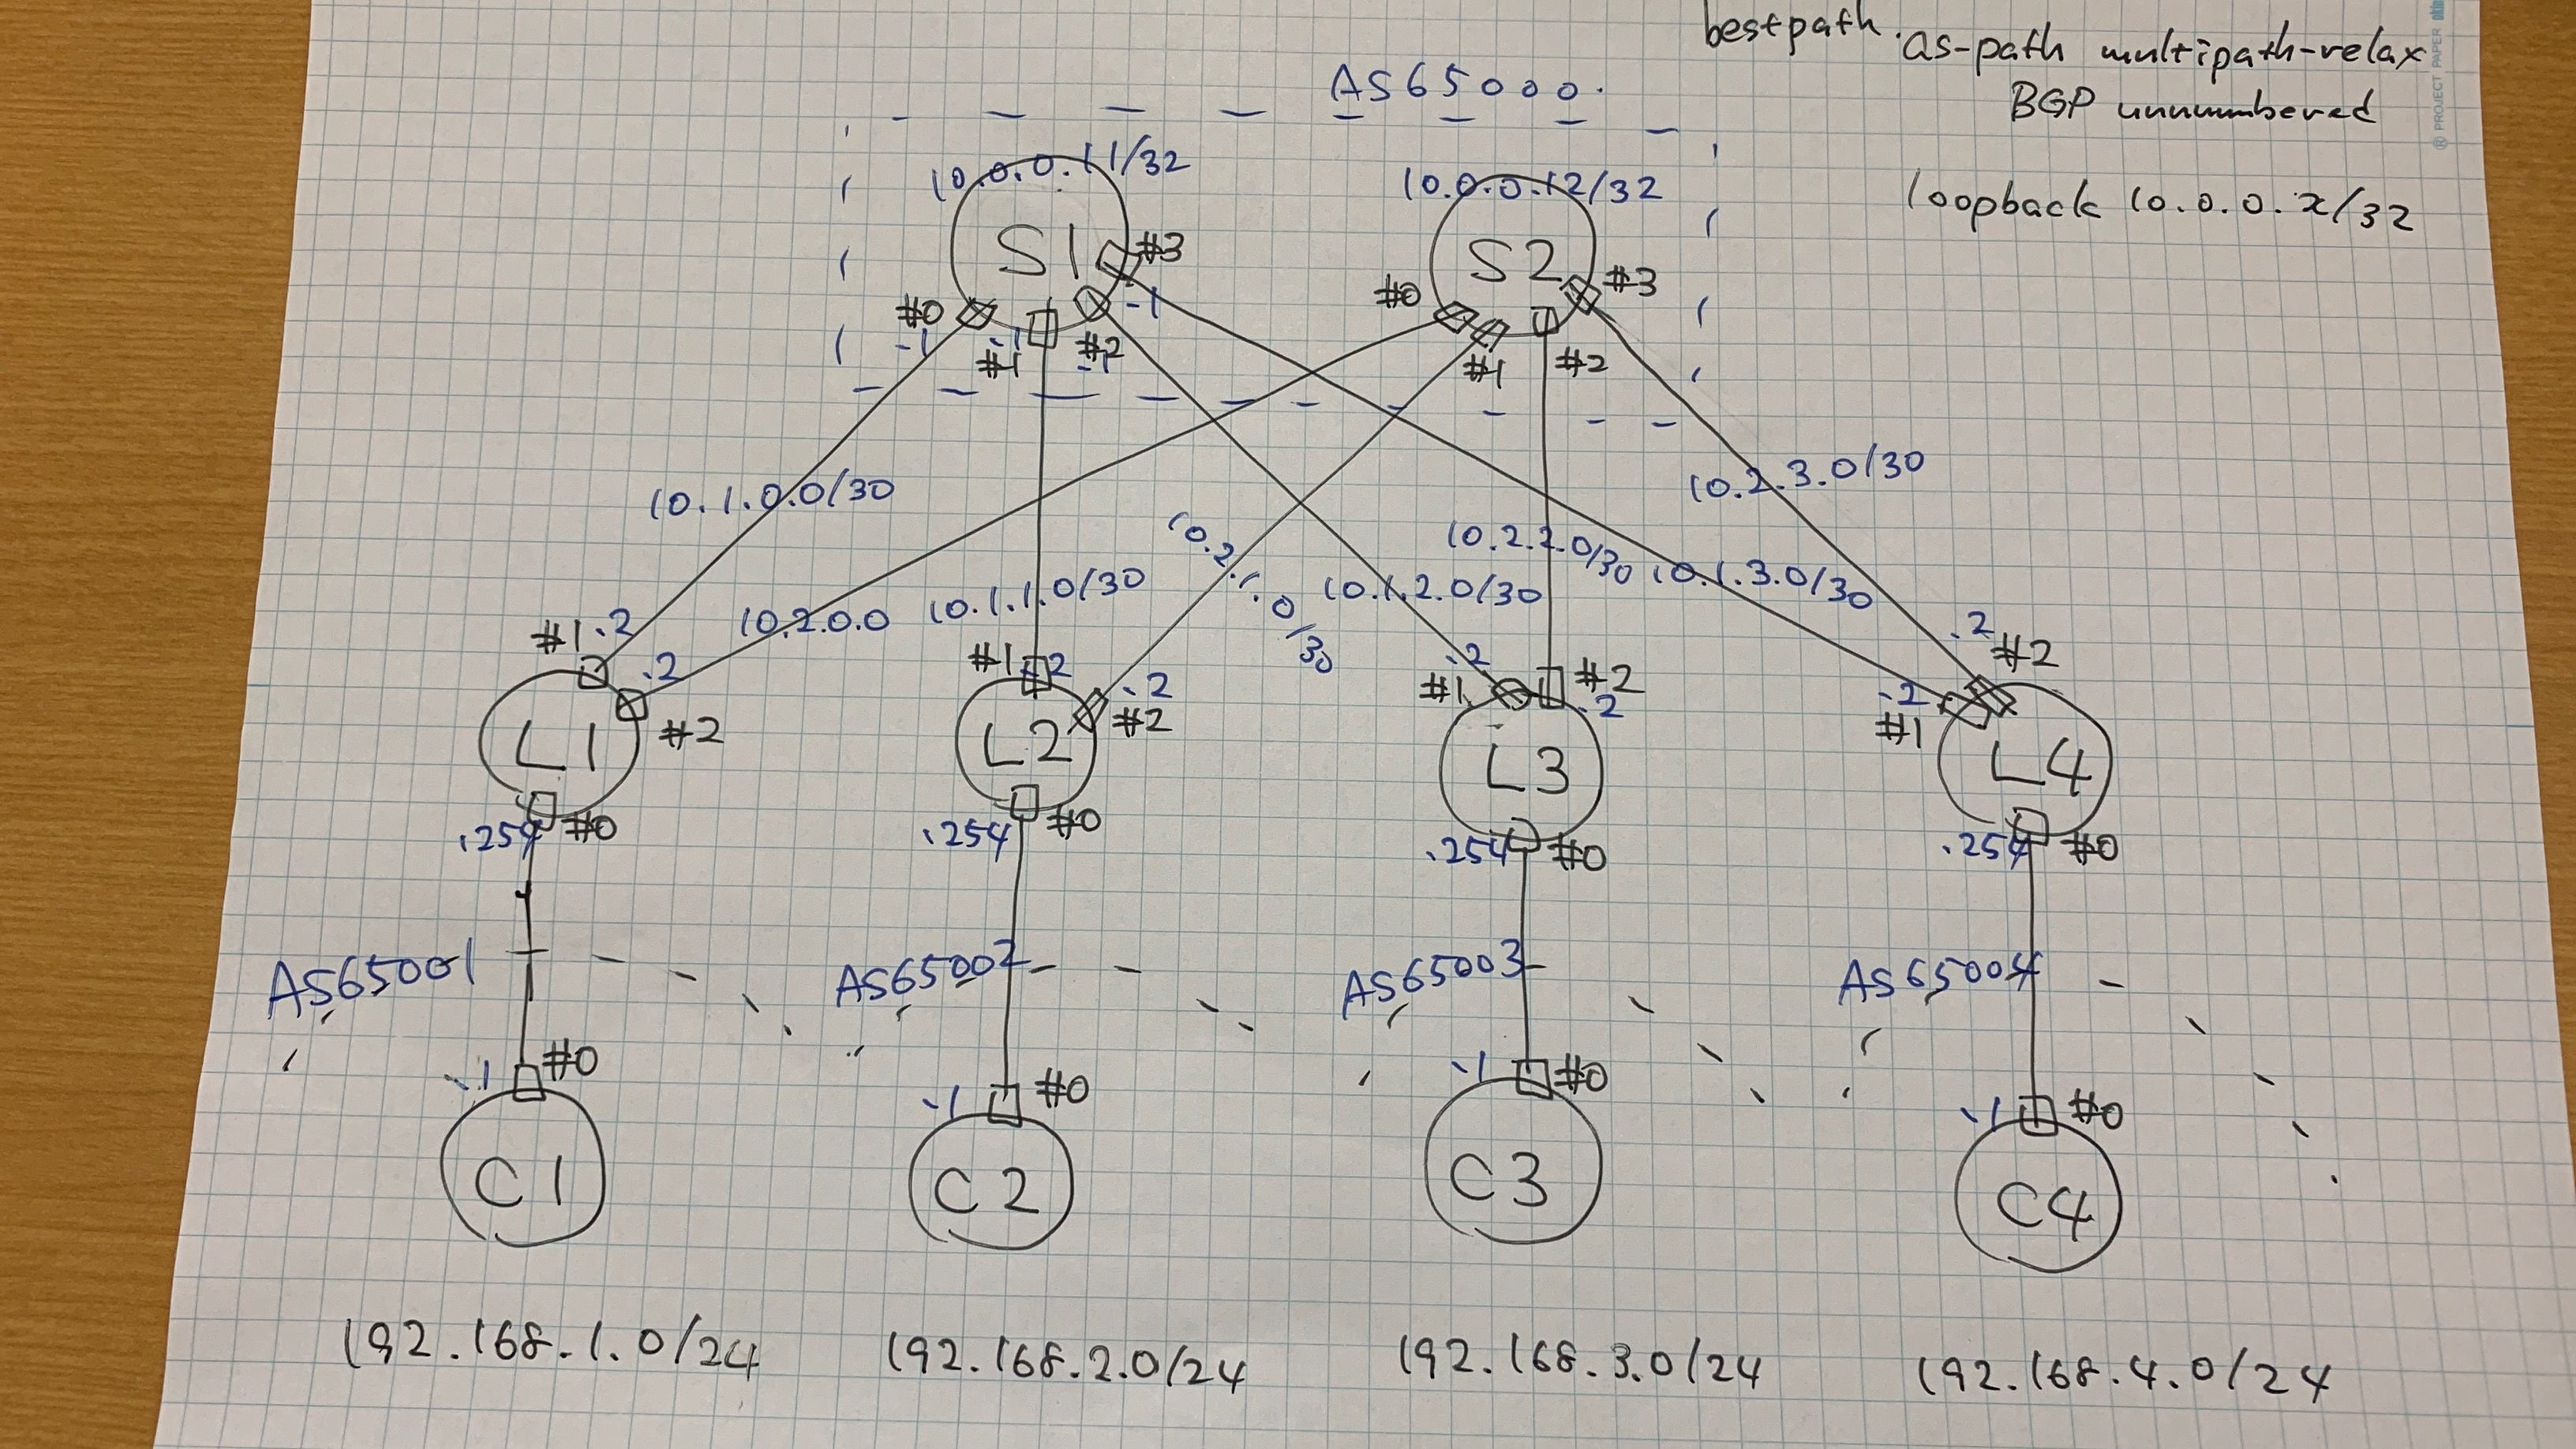 bestpath.
as-path multipath-relax
BGP unnumbered
loopback 10.0.0.x/32
® PROJECT PAPER
AS65000.
10.0.0.11/32
10.0.0.12/32
S1
#3
.1
#0
.1
.1
#1
#2
.1
S2
#3
#0
#1
#2
10.1.0.0/30
10.2.0.0
10.1.1.0/30
10.2.1.0/30
10.1.2.0/30
10.2.2.0/30
10.1.3.0/30
10.2.3.0/30
#1 .2
.2
L1
#2
.254
#0
#1
.2
.2
#2
L2
.254
#0
.2
#1
#2
.2
L3
.254
#0
.2
#2
.2
#1
L4
.254
#0
AS65001
AS65002
AS65003
AS65004
.1
#0
C1
.1
#0
C2
.1
#0
C3
.1
#0
C4
192.168.1.0/24
192.168.2.0/24
192.168.3.0/24
192.168.4.0/24